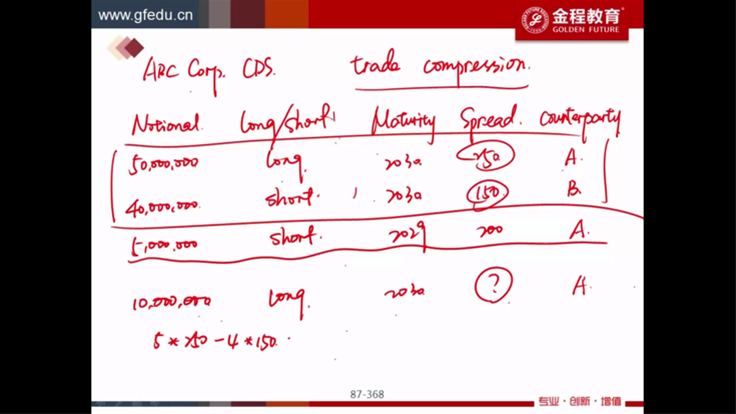 www.gfedu.cn
金程教育
GOLDEN FUTURE
ABC Corp. CDS. trade compression.
Notional Long/short Maturity Spread. counterparty
50,000,000 long. 2030 250 A.
40,000,000. short. 2030 150 B.
5,000,000 short. 2029 200 A.
10,000,000 long. 2030 ? A
5 * 250 - 4 * 150.
87-368
专业·创新·增值